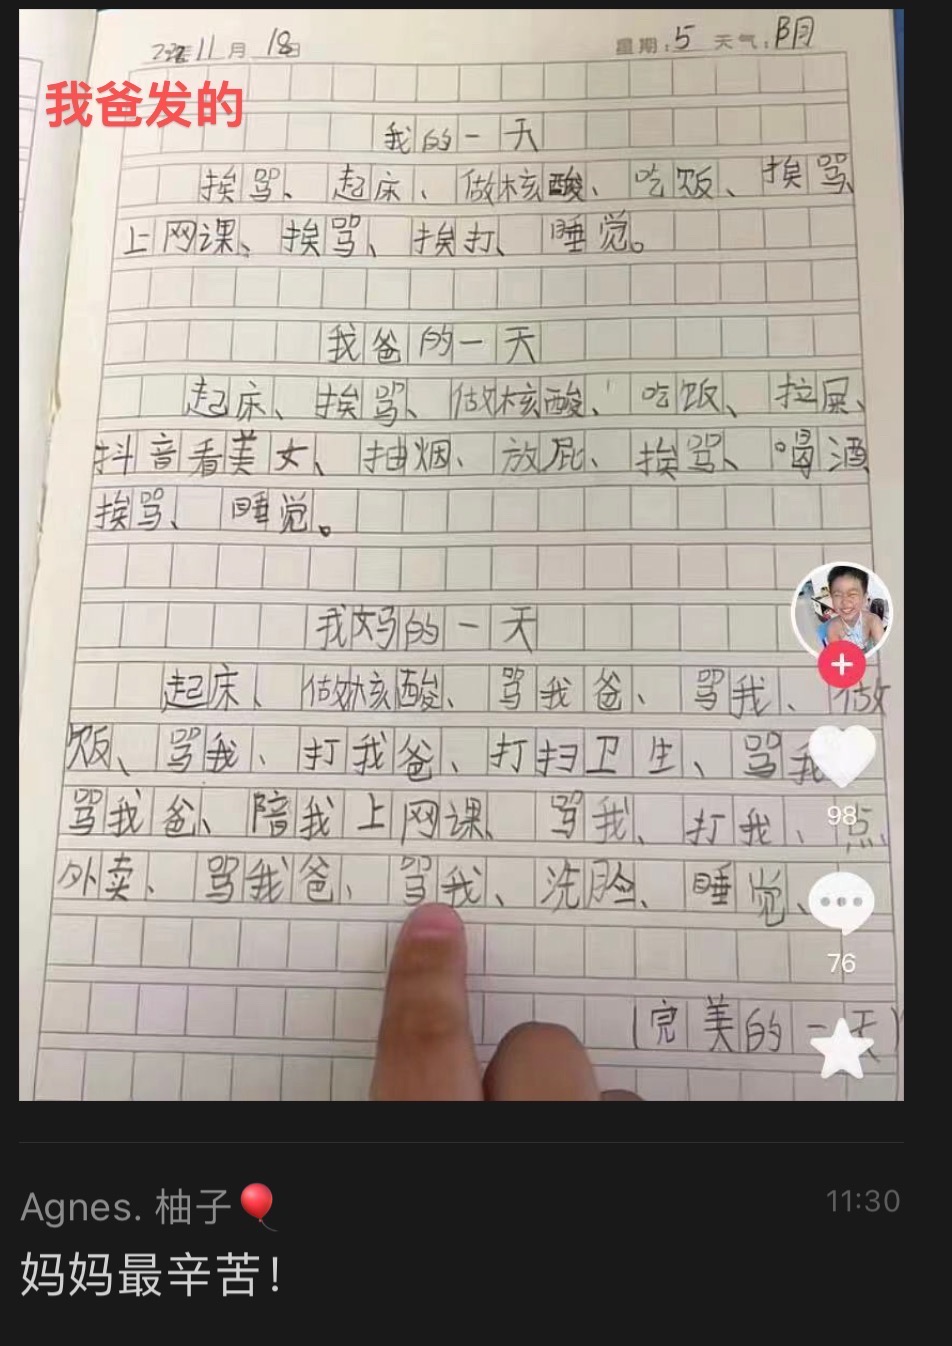 2022年11月18日 星期:5 天气:阴
我爸发的
我的一天
挨骂、起床、做核酸、吃饭、挨骂、
上网课、挨骂、挨打、睡觉。
我爸的一天
起床、挨骂、做核酸、吃饭、拉屎、
抖音看美女、抽烟、放屁、挨骂、喝酒
挨骂、睡觉。
我妈的一天
起床、做核酸、骂我爸、骂我、做
饭、骂我、打我爸、打扫卫生、骂我
骂我爸、陪我上网课、骂我、打我、点
外卖、骂我爸、骂我、洗脸、睡觉、
98
76
(完美的一天)
Agnes. 柚子 11:30
妈妈最辛苦!